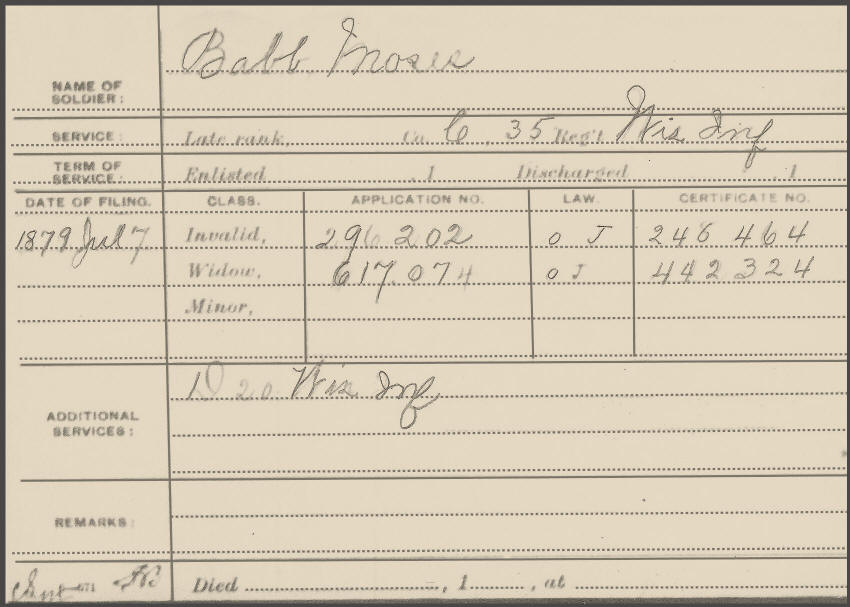 Babb, Moses
NAME OF
SOLDIER:
SERVICE: Late rank, Co. C, 35 Reg't Wis Inf
TERM OF
SERVICE: Enlisted , 1 Discharged , 1
DATE OF FILING. CLASS. APPLICATION NO. LAW. CERTIFICATE NO.
1879 Jul 7 Invalid, 296 202 O J 246 464
Widow, 617.074 O J 442 324
Minor,
D 20 Wis Inf
ADDITIONAL
SERVICES:
REMARKS:
Died , 1 , at